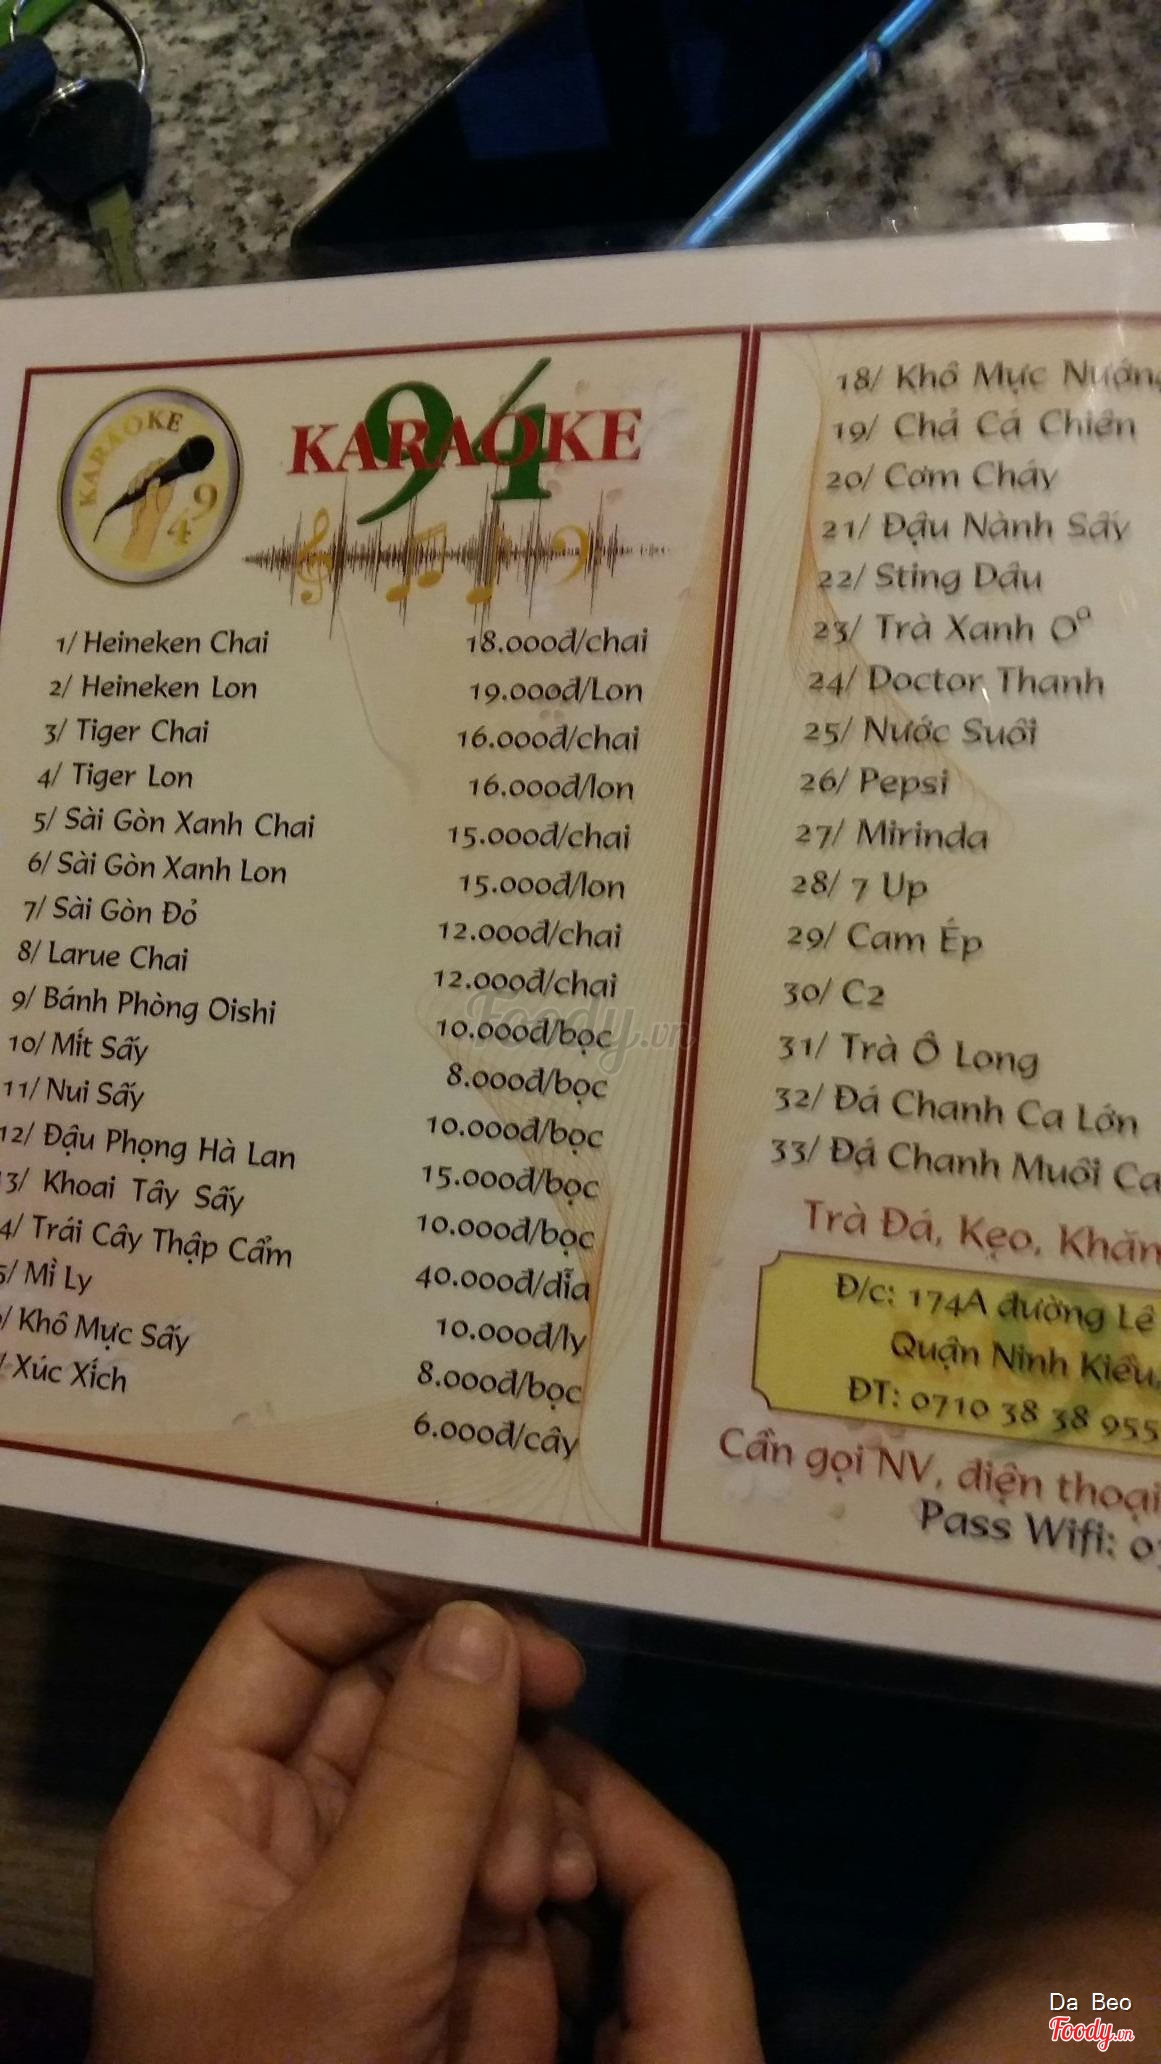 KARAOKE
94
94
KARAOKE
1/ Heineken Chai 18.000đ/chai
2/ Heineken Lon 19.000đ/Lon
3/ Tiger Chai 16.000đ/chai
4/ Tiger Lon 16.000đ/lon
5/ Sài Gòn Xanh Chai 15.000đ/chai
6/ Sài Gòn Xanh Lon 15.000đ/lon
7/ Sài Gòn Đỏ 12.000đ/chai
8/ Larue Chai 12.000đ/chai
9/ Bánh Phòng Oishi 10.000đ/bọc
10/ Mít Sấy 8.000đ/bọc
11/ Nui Sấy 10.000đ/bọc
12/ Đậu Phọng Hà Lan 15.000đ/bọc
3/ Khoai Tây Sấy 10.000đ/bọc
4/ Trái Cây Thập Cẩm 40.000đ/dĩa
5/ Mì Ly 10.000đ/ly
/ Khô Mực Sấy 8.000đ/bọc
/ Xúc Xích 6.000đ/cây
18/ Khô Mực Nướng
19/ Chả Cá Chiên
20/ Cơm Cháy
21/ Đậu Nành Sấy
22/ Sting Dâu
23/ Trà Xanh Oº
24/ Doctor Thanh
25/ Nước Suối
26/ Pepsi
27/ Mirinda
28/ 7 Up
29/ Cam Ép
30/ C2
31/ Trà Ô Long
32/ Đá Chanh Ca Lớn
33/ Đá Chanh Muối Ca
Trà Đá, Kẹo, Khăn
Đ/c: 174A đường Lê
Quận Ninh Kiều,
ĐT: 0710 38 38 955
Cần gọi NV, điện thoại
Pass Wifi: 0
Foody.vn
Da Beo
Foody.vn